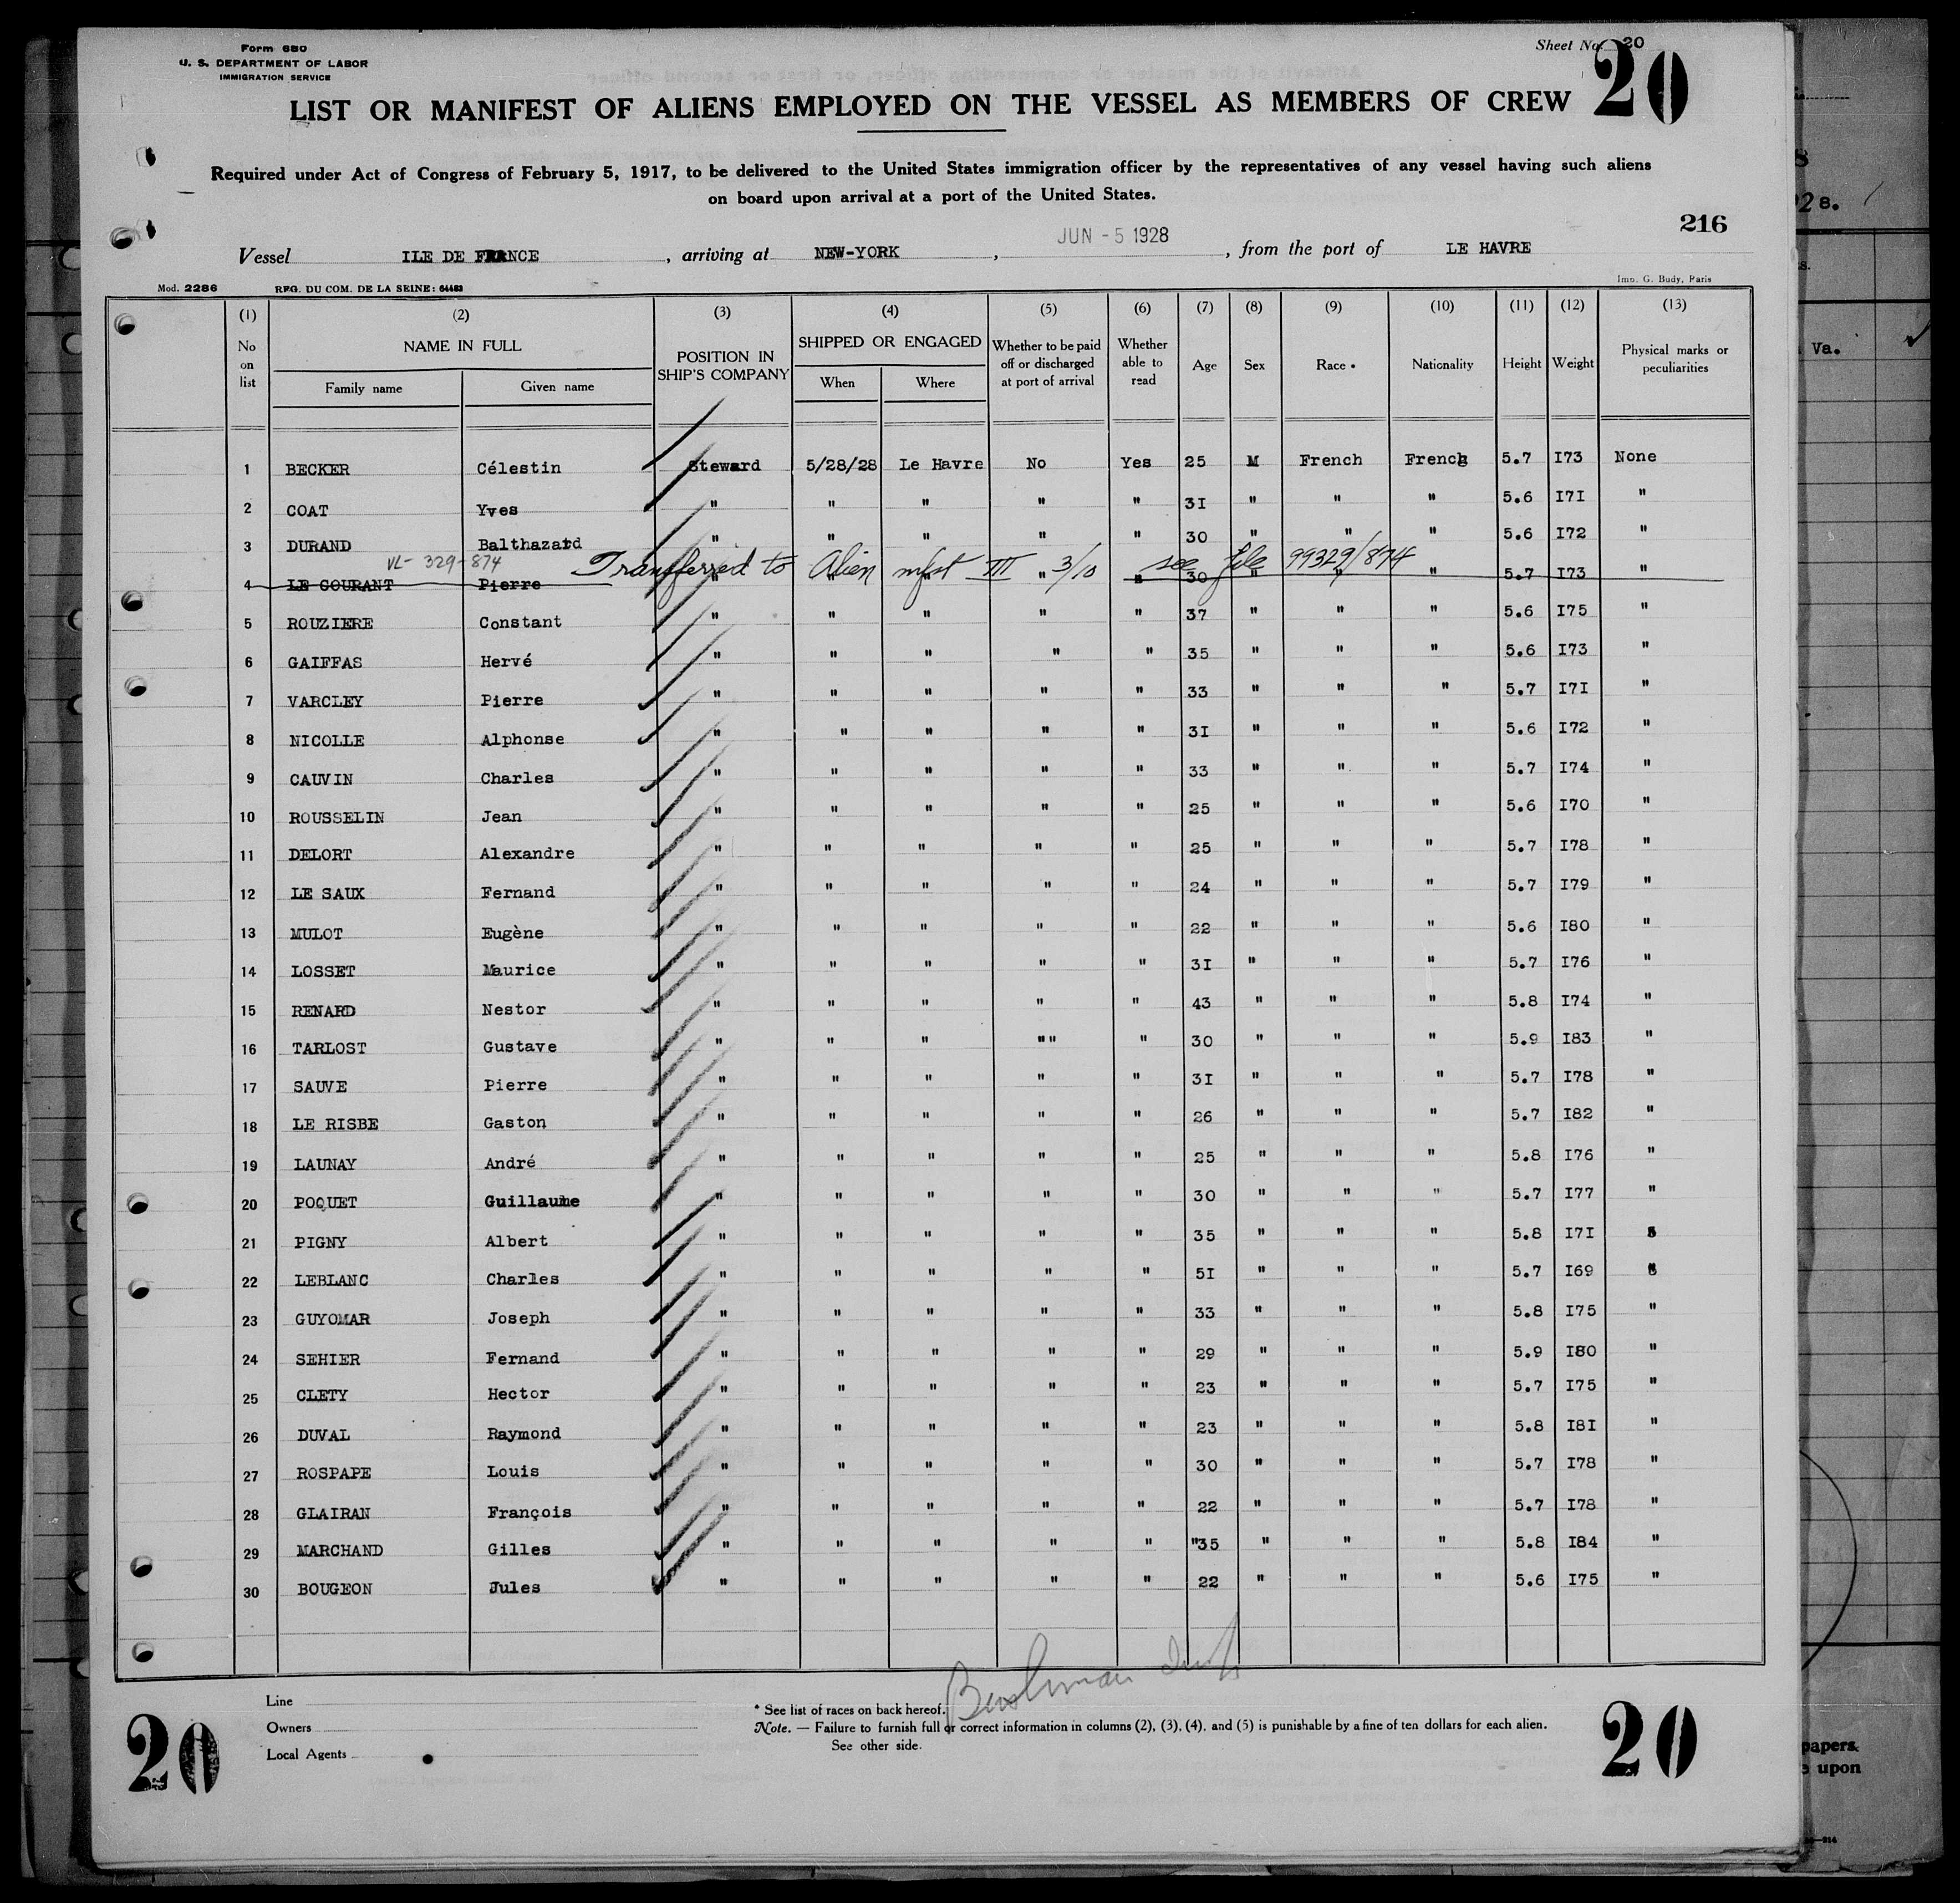 Form 680
U. S. DEPARTMENT OF LABOR
IMMIGRATION SERVICE
Sheet No. 20
20
LIST OR MANIFEST OF ALIENS EMPLOYED ON THE VESSEL AS MEMBERS OF CREW
Required under Act of Congress of February 5, 1917, to be delivered to the United States immigration officer by the representatives of any vessel having such aliens
on board upon arrival at a port of the United States.
216
Vessel ILE DE FRANCE , arriving at NEW-YORK , JUN - 5 1928 , from the port of LE HAVRE
Mod. 2286 REG. DU COM. DE LA SEINE: 64483 Imp. G. Budy, Paris
(1) (2) (3) (4) (5) (6) (7) (8) (9) (10) (11) (12) (13)
No on list NAME IN FULL Family name Given name POSITION IN SHIP'S COMPANY SHIPPED OR ENGAGED When Where Whether to be paid off or discharged at port of arrival Whether able to read Age Sex Race * Nationality Height Weight Physical marks or peculiarities
1 BECKER Célestin Steward 5/28/28 Le Havre No Yes 25 M French French 5.7 I73 None
2 COAT Yves " " " " " 3I " " " 5.6 I7I "
3 DURAND Balthazard " " " " " 30 " " " 5.6 I72 "
VL- 329-874 Transferred to Alien mfst III 3/10 see file 99329/874
4 LE GOURANT Pierre " " " " " 30 " " " 5.7 I73 "
5 ROUZIERE Constant " " " " " 37 " " " 5.6 I75 "
6 GAIFFAS Hervé " " " " " 35 " " " 5.6 I73 "
7 VARCLEY Pierre " " " " " 33 " " " 5.7 I7I "
8 NICOLLE Alphonse " " " " " 3I " " " 5.6 I72 "
9 CAUVIN Charles " " " " " 33 " " " 5.7 I74 "
10 ROUSSELIN Jean " " " " " 25 " " " 5.6 I70 "
11 DELORT Alexandre " " " " " 25 " " " 5.7 I78 "
12 LE SAUX Fernand " " " " " 24 " " " 5.7 I79 "
13 MULOT Eugène " " " " " 22 " " " 5.6 I80 "
14 LOSSET Maurice " " " " " 3I " " " 5.7 I76 "
15 RENARD Nestor " " " " " 43 " " " 5.8 I74 "
16 TARLOST Gustave " " " " " " 30 " " " 5.9 I83 "
17 SAUVE Pierre " " " " " 3I " " " 5.7 I78 "
18 LE RISBE Gaston " " " " " 26 " " " 5.7 I82 "
19 LAUNAY André " " " " " 25 " " " 5.8 I76 "
20 POQUET Guillaume " " " " " 30 " " " 5.7 I77 "
21 PIGNY Albert " " " " " 35 " " " 5.8 I7I
22 LEBLANC Charles " " " " " 5I " " " 5.7 I69
23 GUYOMAR Joseph " " " " " 33 " " " 5.8 I75 "
24 SEHIER Fernand " " " " " 29 " " " 5.9 I80 "
25 CLETY Hector " " " " " 23 " " " 5.7 I75 "
26 DUVAL Raymond " " " " " 23 " " " 5.8 I8I "
27 ROSPAPE Louis " " " " " 30 " " " 5.7 I78 "
28 GLAIRAN François " " " " " 22 " " " 5.7 I78 "
29 MARCHAND Gilles " " " " " "35 " " " 5.8 I84 "
30 BOUGEON Jules " " " " " 22 " " " 5.6 I75 "
Line
Owners
Local Agents
* See list of races on back hereof.
Note. — Failure to furnish full or correct information in columns (2), (3), (4), and (5) is punishable by a fine of ten dollars for each alien.
See other side.
20
20
28.
Va.
papers
upon